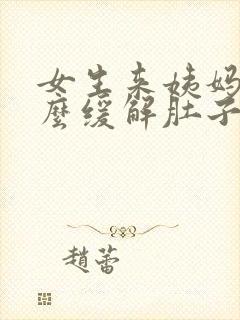 女生来姨妈
麼缓解肚子
趙蕾